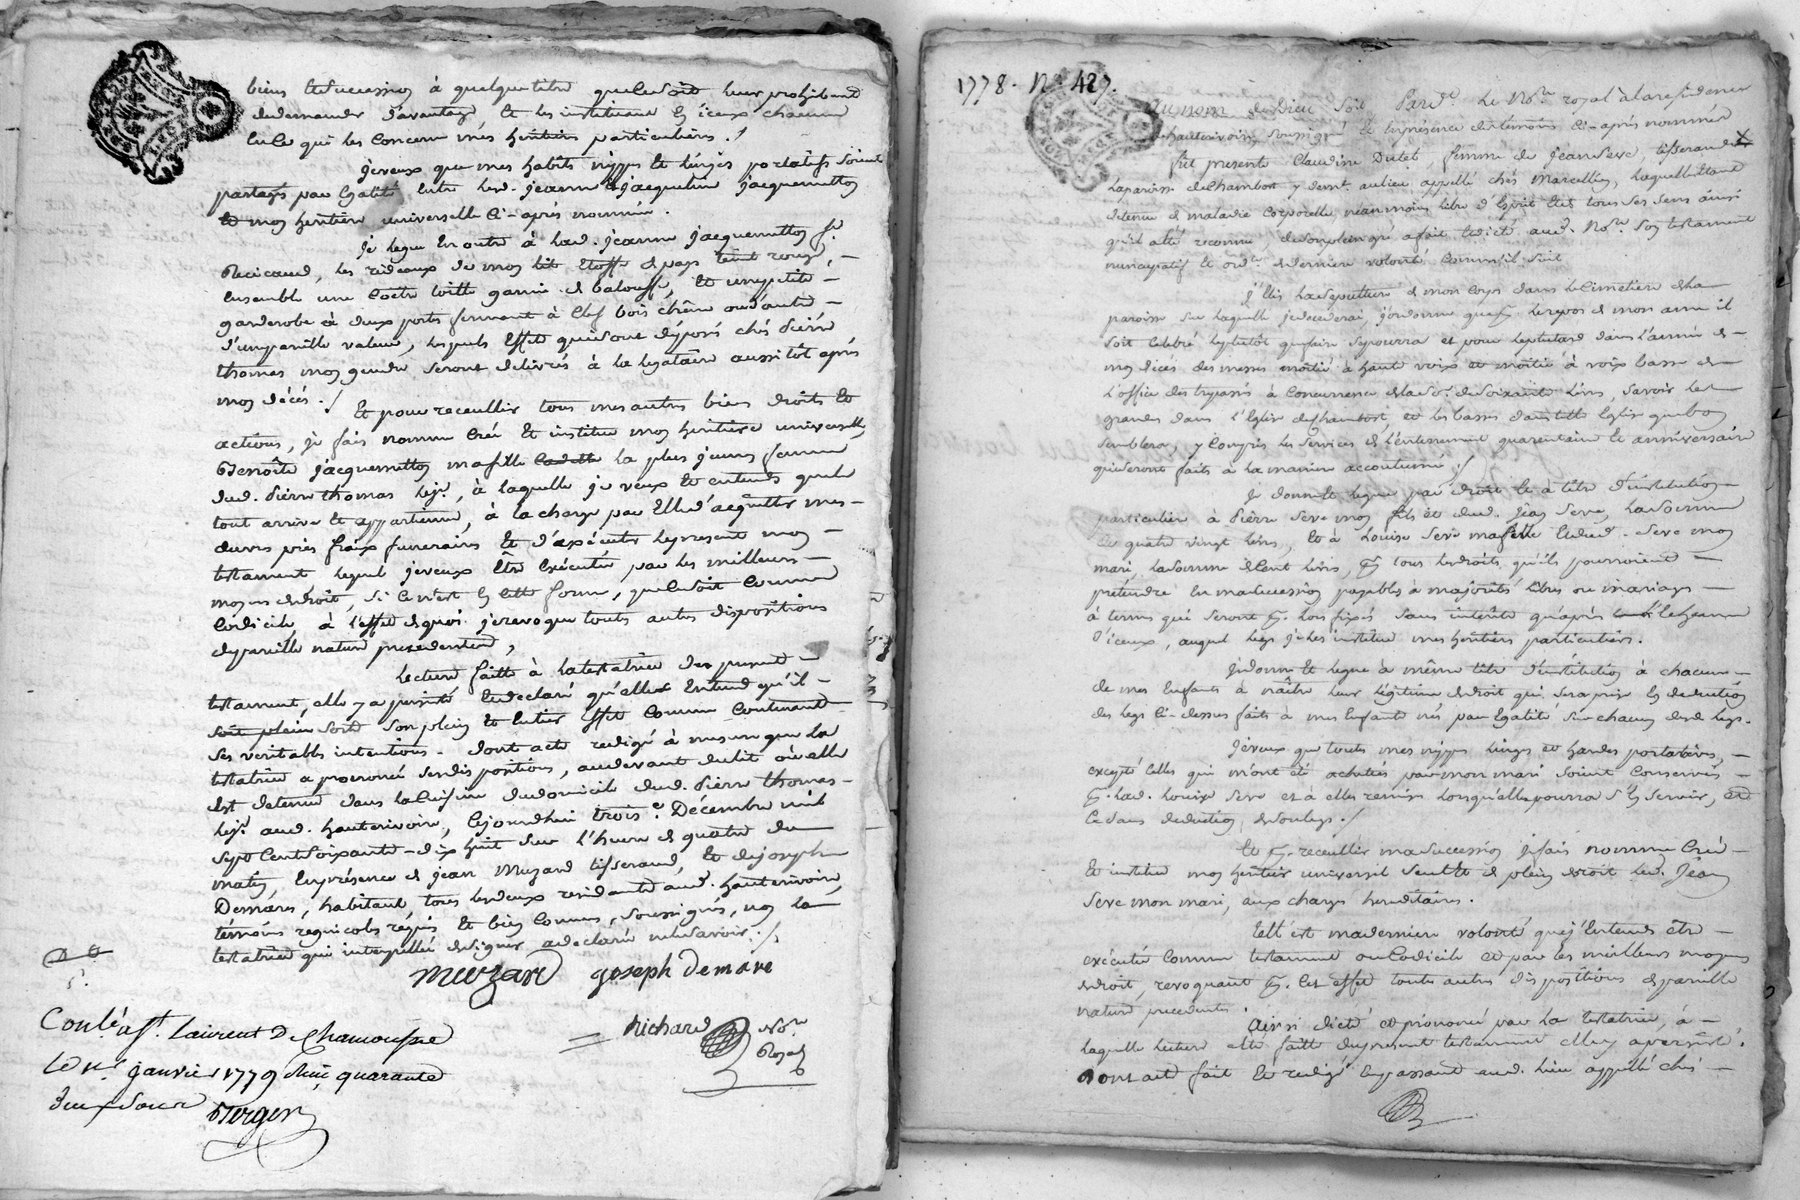 biens et succession à quelque titre que ce soit leur prohibant
de demander d'avantage, et les instituant en iceux chacun
en ce qui les concerne mes heritiers particuliers ./
je veux que mes habits nippes et linges portatifs soient
partagés par egalité entre lesd. jeanne & jacqueline jacquemetton
et mon heritiere universelle ci-après nommée.
je legue en outre à lad. jeanne jacquemetton fe.
les rideaux de mon lit étoffe de pays teint rouge, -
ensemble une coetre toille garnie de baloufle, et une petite -
garderobe à deux portes fermant à clef bois chêne ou d'autre -
d'une pareille valeur, lesquels effets qui sont déposés chés pierre
thomas mon gendre seront delivrés à la legataire aussitôt après
mon décés ./
Et pour receullir tous mes autres biens droits et
actions, je fais nomme crée et institue mon heritiere universelle
Benoîte jacquemetton ma fille cadette la plus jeune femme
dud. pierre thomas à laquelle je veux et entends que le
tout arrive et appartienne, à la charge par elle d'acquitter mes -
œuvres pies fraix funeraires et d'exécuter le present mon -
testament, lequel je veux être exécuté par les meilleurs -
moyens de droit, si ce n'est en cette forme, que ce soit comme
codicile, à l'effet de quoi je revoque toutes autres dispositions
de pareille nature precedentes,
Lecture faitte à la testatrice du present -
testament, elle y a persisté et declaré qu'elle entend qu'il -
soit plein sorte son plein et entier effet comme contenant
ses veritables intentions. dont acte redigé à mesure que la
testatrice a prononcé ses dispositions, au devant du lit où elle
est detenue dans la cuisine du domicile dud. pierre thomas -
aud. hauterivoire, cejourdhui trois e. Décembre mil
sept cent soixante-dix huit sur l'heure de quatre du
matin, en présence de jean Muzard tisserand, et de joseph
Demare, habitant tous les deux residants aud. hauterivoire,
témoins regnicoles réquis et bien connus, soussignés, non la
testatrice qui interpellée de signer a declaré ne le savoir ./.
muzard joseph Demare
Richard Nore
Royal
Conlé. à st. Laurent De Chamousset
Le 1er. janvier 1779 Reçu quarante
deux sous
Berger
1778. No. 427.
Au nom de Dieu soit Pard. le Nore. royal à la residence
d'hauterivoire soussigné et en présence des temoins ci-après nommés
fût presente Claudine Dutel femme de jean Seve, tisserand X
la paroisse de Chambost y demt. au lieu appellé chés Marcellin, laquelle étant
detenue de maladie corporelle néanmoins libre d'Esprit et de tous ses sens ainsi
qu'il a été reconnu, de son plein gré a fait et dicté aud. Nore. son testament
nuncupatif et ordre. de derniere volonté comme s'en suit
j'Elis la sepulture de mon corps dans le Cimetiere de la
paroisse sur laquelle je decederai, j'ordonne que pr. le repos de mon ame il
soit celebré le plutôt que faire se pourra et pour le plutard dans l'année de -
mon décés des messes moitié à haute voix et moitié à voix basse de -
l'office des trepassés à concurrence de la so. de soixante livres, savoir les -
grandes dans l'Eglise de Chambost, et les basses dans telle Eglise que bon
semblera y compris les services de l'enterrement quarantaine et anniversaire
qui seront faits à la maniere accoutumée ./
je donne et legue par droit et à titre d'institution -
particuliere à pierre Seve mon fils et dud. jean Seve, la somme
de quatre vingt livres, et à Louise Seve ma fille et dud. Seve mon
mari, la somme de cent livres, pr. tous les droits qu'ils pourroient -
prétendre en ma succession payables à majorités libres ou mariage -
à termes qui seront pr. lors fixés sans interêts qu'après l'echeance
d'iceux, auquel legs je les institue mes heritiers particuliers.
je donne et legue à même titre d'institution à chacun -
de mes Enfants à naître leur légitime de droit qui sera prise en deduction
des legs ci-dessus faits à mes Enfants nés par Egalité sur chacun desd. legs.
je veux que toutes mes nippes linges et hardes portatives, -
excepté celles qui m'ont été achetées par mon mari soient conservées -
pr. lad. Louise Seve et à elle remises lorsqu'elle pourra s'en servir, et
ce sans deduction de son legs ./
Et pr. receullir ma succession je fais nomme crée -
et institue mon heritier universel seul et de plein droit led. Jean
Seve mon mari, aux charges hereditaires.
telle est ma derniere volonté que j'entends être -
exécutée comme testament ou codicile et par les meilleurs moyens
de droit, revoquant pr. cet effet toutes autres dispositions de pareille
nature precedentes.
Ainsi dicté et prononcé par la testatrice, à -
laquelle lecture a été faitte du present testament elle y a persisté.
Dont acte fait et redigé en passant aud. lieu appellé chés -